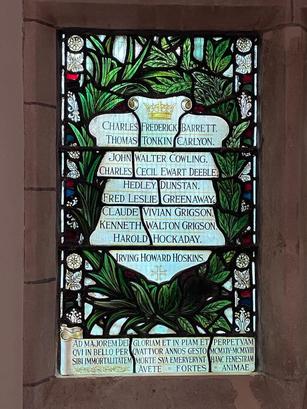 CHARLES FREDERICK BARRETT.
THOMAS TONKIN CARLYON.
JOHN WALTER COWLING.
CHARLES CECIL EWART DEEBLE.
HEDLEY DUNSTAN.
FRED LESLIE GREENAWAY.
CLAUDE VIVIAN GRIGSON.
KENNETH WALTON GRIGSON.
HAROLD HOCKADAY.
IRVING HOWARD HOSKINS.
AD MAJOREM DEI GLORIAM ET IN PIAM ET PERPETVAM
QVI IN BELLO PER QVATTVOR ANNOS GESTO MCMXIV-MCMXVIII
SIBI IMMORTALITATEM MORTE SVA EMERVERVNT HANC FENESTRAM
AVETE FORTES ANIMAE